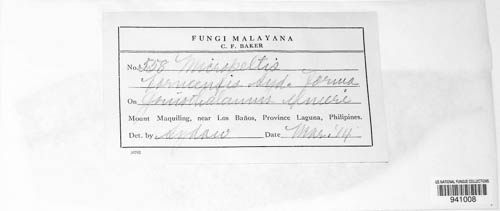 FUNGI MALAYANA
C. F. BAKER
No. 558 Micropeltis
Syd. Forma
On Goniothalamus
Mount Maquiling, near Los Baños, Province Laguna, Philipines.
Det. by Sydow Date Mar. '14
US NATIONAL FUNGUS COLLECTIONS
941008